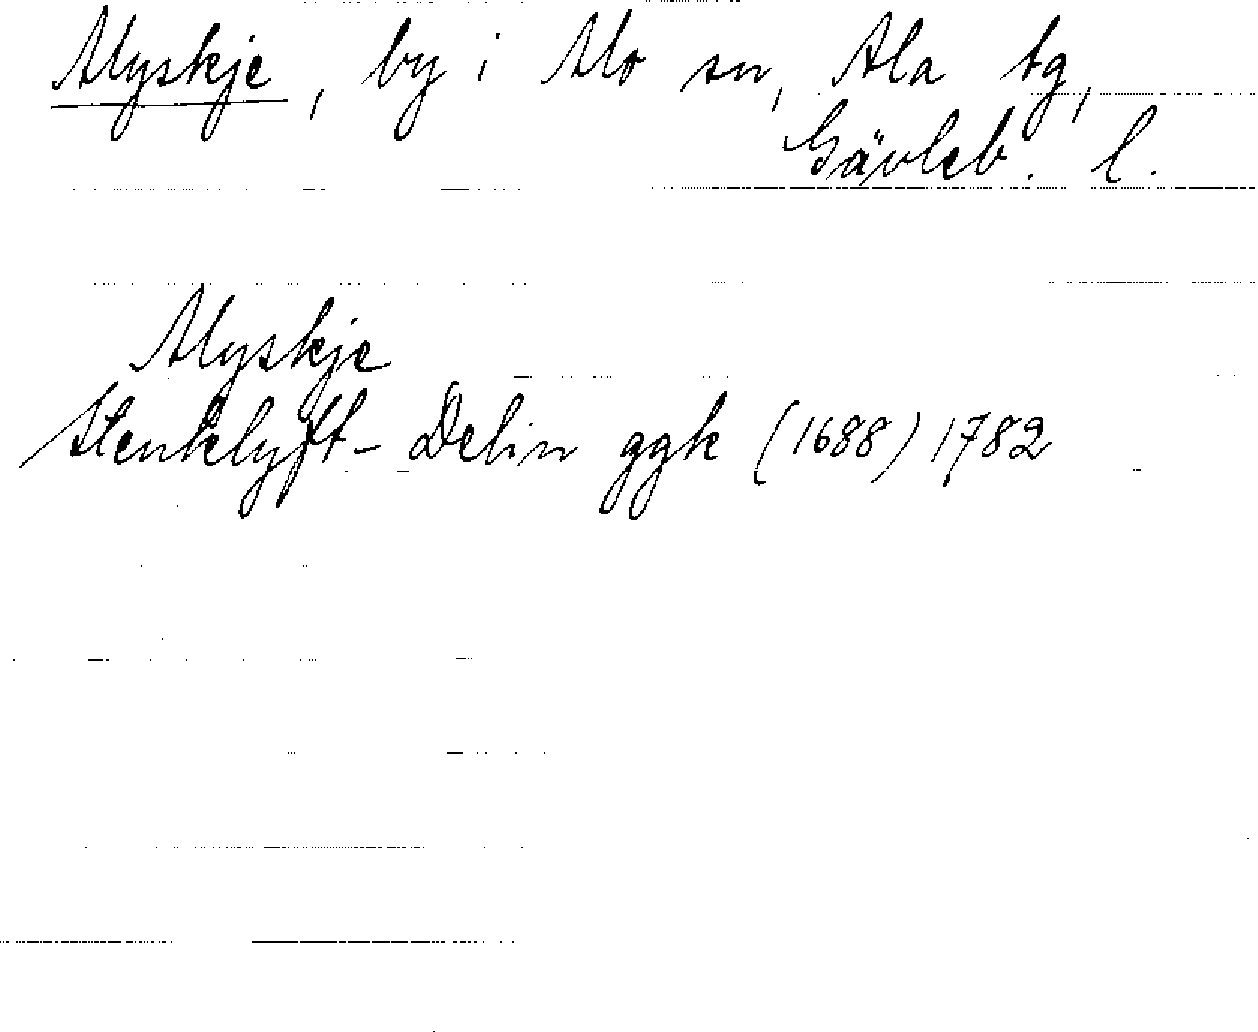 Myskje, by i Mo sn, Ala tg,
Gävleb. l.
Myskje
Stenklyft- Delin ggk (1688) 1782